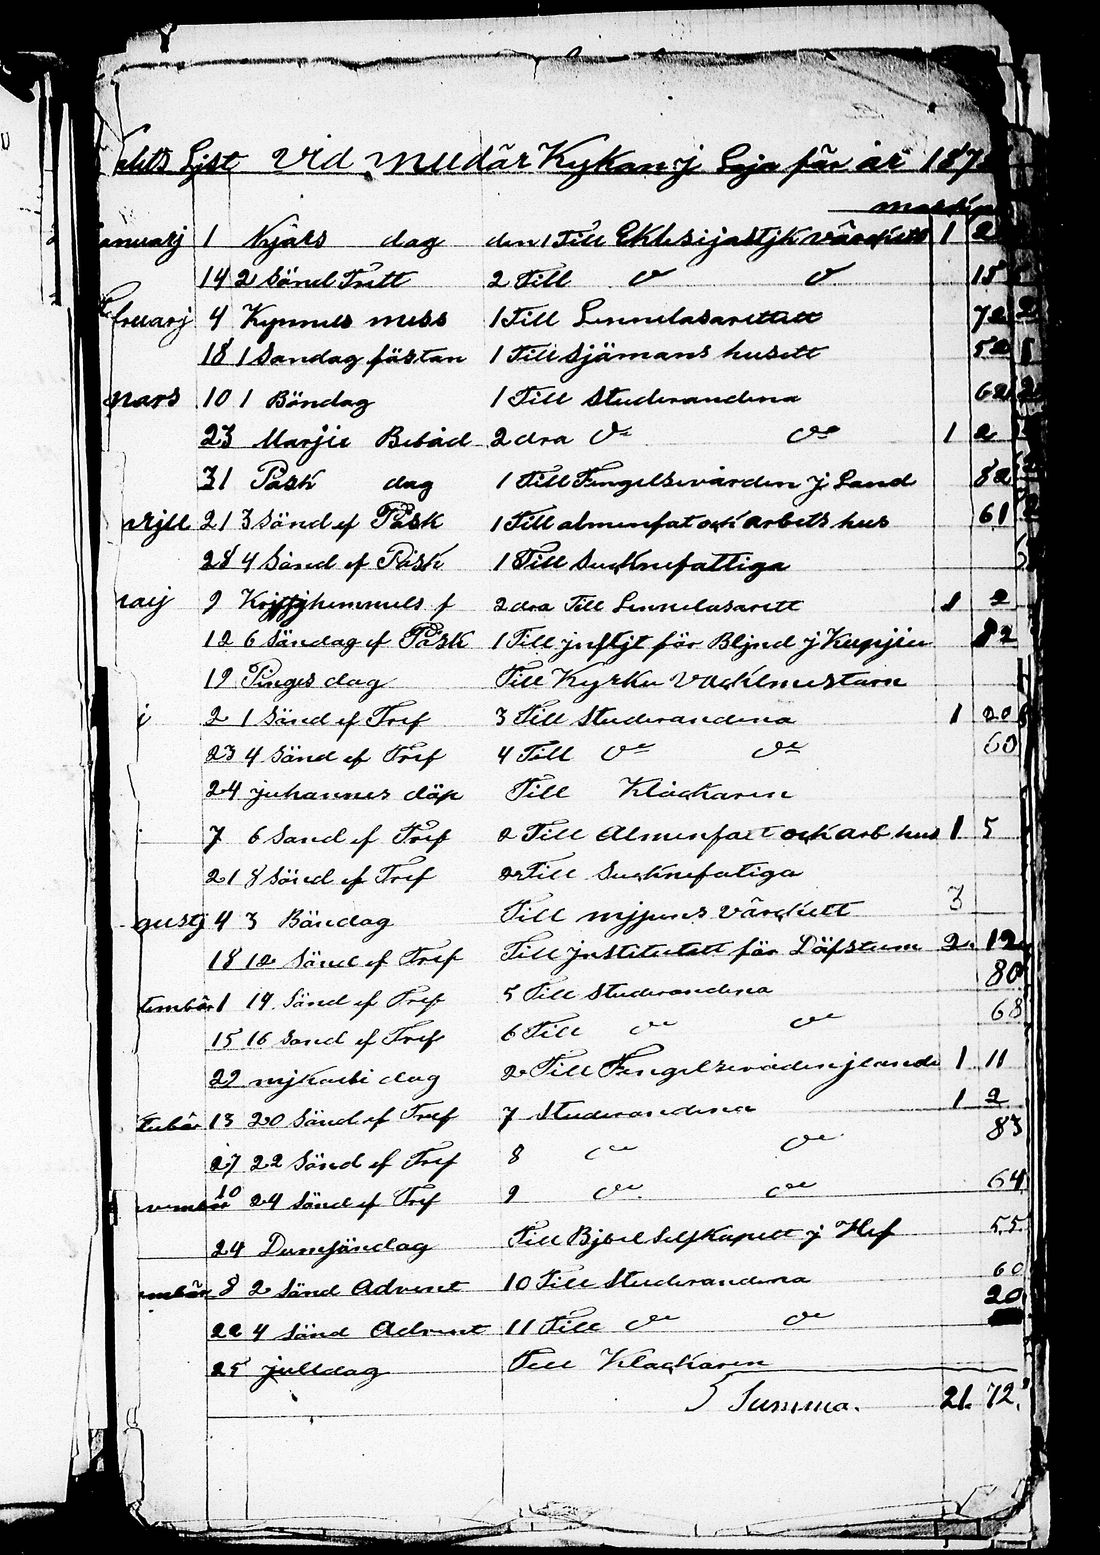 Ljst Vid mudär Kykan j Loja för år 187
mark
anuarj 1 Nyårs dag den 1 Till Eklesijastjk värcketts 1 2
14 2 Sönd Trett 2 Till do do 15
bruarj 4 Kynnels mess 1 Till Lennelasarettett 72
18 1 Sondag fästan 1 Till Sjömans husett 52
mars 10 1 Böndag 1 Till Studerandena 62
23 Marjie Bebåd 2 dra do do 1 2
31 Påsk dag 1 Till Fengelsevården j Land 82
prjll 21 3 Sönd ef Påsk 1 Till almenfat ock arbets hus 61
28 4 Sönd ef Påsk 1 Till Sucknefattiga
maij 9 hemmels f 2 dra Till Lennelasarett 1 2
12 6 Söndag ef Påsk 1 Till för Bljnd j Kupjie 82
19 Pinges dag Till Kyrku Vacktmestarn
j 2 1 Sönd ef Tref 3 Till Studerandena 1 20
23 4 Sönd ef Tref 4 Till do do 60
24 Juhannes döp Till Klåckaren
7 6 Sönd ef Tref 2 Till Almenfatt ock arb hus 1 5
21 8 Sönd ef Tref 2 Till Sucknefatiga
gustj 4 3 Böndag Till mjjuns värckett 3
18 12 Sönd ef Tref Till jnstitutett för Döfstum 2 12
tembär 1 14 Sönd ef Tref 5 Till Studerandena 80
15 16 Sönd ef Tref 6 Till do do 68
29 mjkaeli dag 2 Till Fengelsevåden j lande 1 11
tubär 13 20 Sönd ef Tref 7 Studerandena 1 2
27 22 Sönd ef Tref 8 do do 83
vembär 10 24 Sönd ef Tref 9 do do 64
24 Dumsöndag Till Bjbel selskapett j Hef 55
embär 8 2 Sönd Advent 10 Till Studerandena 60
22 4 Sönd Advent 11 Till do do 20
25 julldag Till Klåckaren
Summa. 21. 72.